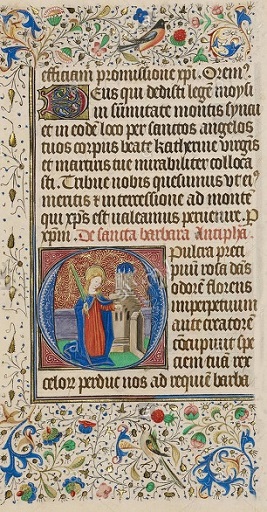 efficiam promissione xpi. Orem9
Deus qui dedisti legē moysi
in sumitate montis synai
et in eodē loco per sanctos angelos
tuos corpus beate katherine virgis
et martiris tue mirabiliter colloca
sti. Tribue nobis quesumus ut ei9
meritis & intercessione ad monte
qui xp̄s est valeamus peruenire. P
xpm. De sancta barbara Antipha.
Pulcra preci
pim rosa dās
odorē florens
imperpetuum
ante creatorē
cōcupiuit spe
ciem tuā rex
celoȝ perduc nos ad requiē barba